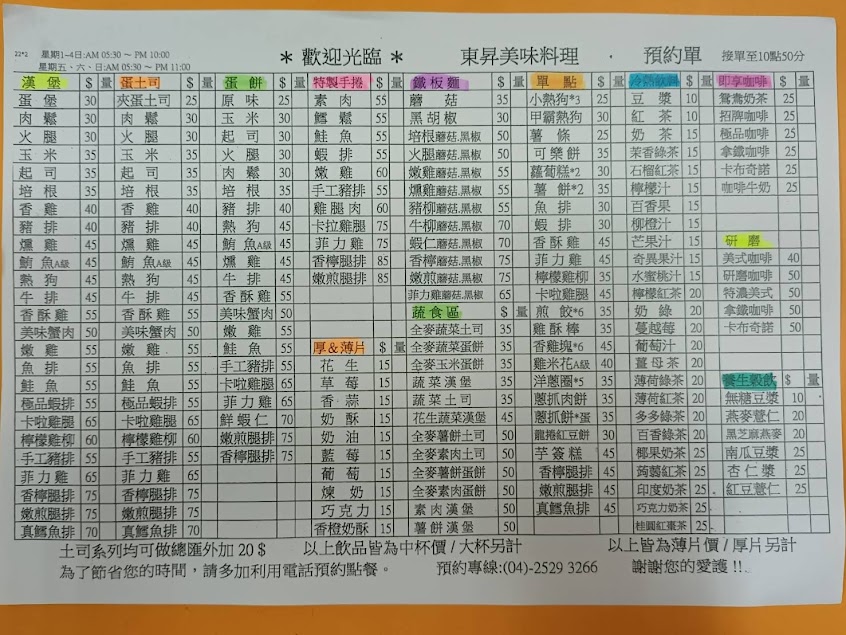 22*2 星期1~4日:AM 05:30 ~ PM 10:00
星期五、六、日:AM 05:30 ~ PM 11:00
* 歡迎光臨 * 東昇美味料理 . 預約單 接單至10點50分
漢堡 $ 量 蛋土司 $ 量 蛋餅 $ 量 特製手捲 $ 量 鐵板麵 $ 量 單點 $ 量 冷熱飲料 $ 量 即享咖啡 $ 量
蛋堡 30 夾蛋土司 25 原味 25 素肉 55 蘑菇 35 小熱狗*3 25 豆漿 10 鴛鴦奶茶 25
肉鬆 30 肉鬆 30 玉米 30 鱈魚 55 黑胡椒 甲霸熱狗 30 紅茶 10 招牌咖啡 25
火腿 30 火腿 30 起司 30 鮭魚 55 培根蘑菇.黑椒 50 薯條 25 奶茶 15 極品咖啡 25
玉米 35 玉米 35 火腿 30 蝦排 55 火腿蘑菇.黑椒 50 可樂餅 35 茉香綠茶 15 拿鐵咖啡 25
起司 35 起司 35 肉鬆 30 嫩雞 60 嫩雞蘑菇.黑椒 55 蘿蔔糕*2 30 石榴紅茶 15 卡布奇諾 25
培根 35 培根 35 培根 35 手工豬排 55 燻雞蘑菇.黑椒 55 薯餅*2 35 檸檬汁 15 咖啡牛奶 25
香雞 40 香雞 40 豬排 40 雞腿肉 60 豬柳蘑菇.黑椒 魚排 30 百香果 15
豬排 40 豬排 40 熱狗 45 卡拉雞腿 75 牛柳蘑菇.黑椒 70 蝦排 30 柳橙汁 15
燻雞 45 燻雞 45 鮪魚A級 45 菲力雞 75 蝦仁蘑菇.黑椒 香酥雞 45 芒果汁 15 研磨
鮪魚A級 45 鮪魚A級 45 燻雞 45 香檸腿排 85 香檸蘑菇.黑椒 75 菲力雞 45 奇異果汁 15 美式咖啡 40
熱狗 45 熱狗 45 牛排 45 嫩煎腿排 85 嫩煎蘑菇.黑椒 75 檸檬雞柳 45 水蜜桃汁 15 研磨咖啡 50
牛排 45 牛排 45 香酥雞 55 菲力雞蘑菇.黑椒 65 卡啦雞腿 45 檸檬紅茶 20 特濃美式 50
香酥雞 55 香酥雞 55 美味蟹肉 50 蔬食區 $ 量 煎餃*6 35 奶綠 20 拿鐵咖啡 50
美味蟹肉 50 美味蟹肉 50 嫩雞 55 全麥蔬菜土司 35 雞酥棒 35 蔓越莓 20 卡布奇諾 50
嫩雞 55 嫩雞 55 鮭魚 55 厚&薄片 $ 量 全麥蔬菜蛋餅 35 香雞塊*6 45 葡萄汁 20
魚排 55 魚排 55 手工豬排 55 花生 15 全麥玉米蛋餅 35 雞米花A級 40 薑母茶 20
鮭魚 55 鮭魚 55 卡啦雞腿 65 草莓 15 蔬菜漢堡 35 洋蔥圈*5 35 薄荷綠茶 20 養生穀飲 $ 量
極品蝦排 55 極品蝦排 55 菲力雞 65 香蒜 15 蔬菜土司 35 蔥抓肉餅 35 薄荷紅茶 20 無糖豆漿 10
卡啦雞腿 65 卡啦雞腿 65 鮮蝦仁 70 奶酥 15 花生蔬菜漢堡 45 蔥抓餅*蛋 35 多多綠茶 20 燕麥薏仁 20
檸檬雞柳 60 檸檬雞柳 60 嫩煎腿排 75 奶油 15 全麥薯餅土司 50 龍捲紅豆餅 30 百香綠茶 20 黑芝麻燕麥 20
手工豬排 55 手工豬排 55 香檸腿排 75 藍莓 15 全麥素肉土司 50 芋簽糕 45 椰果奶茶 25 南瓜豆漿 25
菲力雞 65 菲力雞 65 葡萄 15 全麥薯餅蛋餅 50 香檸腿排 55 蒟蒻紅茶 25 杏仁漿 25
香檸腿排 75 香檸腿排 75 煉奶 15 全麥素肉蛋餅 50 嫩煎腿排 55 印度奶茶 25 紅豆薏仁 25
嫩煎腿排 75 嫩煎腿排 75 巧克力 15 素肉漢堡 50 真鱈魚排 45 巧克力奶茶 25
真鱈魚排 70 真鱈魚排 70 香橙奶酥 15 薯餅漢堡 50 桂圓紅棗茶 25
土司系列均可做總匯外加 20 $ 以上飲品皆為中杯價 / 大杯另計 以上皆為薄片價 / 厚片另計
為了節省您的時間，請多加利用電話預約點餐。 預約專線:(04)-2529 3266 謝謝您的愛護 !!.